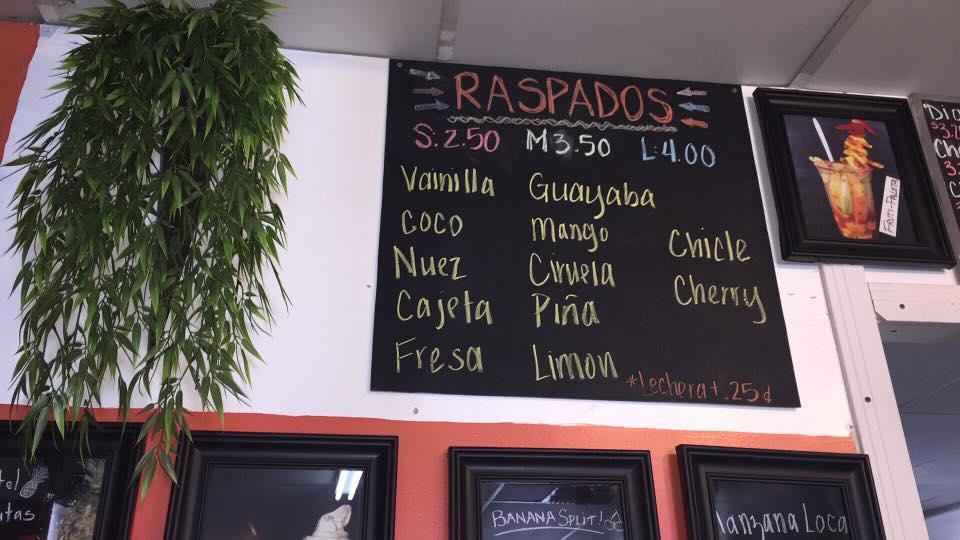 RASPADOS
S: 2.50 M 3.50 L: 4.00
Vainilla
Coco
Nuez
Cajeta
Fresa
Guayaba
Mango
Ciruela
Piña
Limon
Chicle
Cherry
*Lechera + .25¢
FRUTI-PALETA
BANANA SPLIT!
Manzana Loca